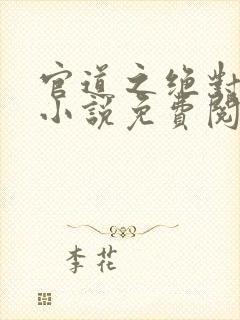 官道之绝对
小说免費閱
李花